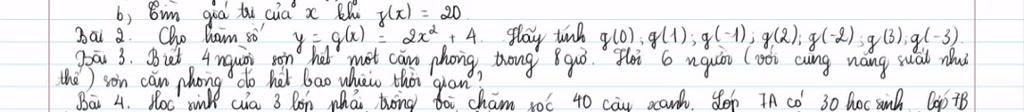 b, Tìm giá trị của x khi f(x) = 20.
Bài 2. Cho hàm số y = g(x) = 2x² + 4. Hãy tính g(0); g(1); g(-1); g(2); g(-2); g(3); g(-3).
Bài 3. Biết 4 người sơn hết một căn phòng trong 8 giờ. Hỏi 6 người (với cùng năng suất như
thế) sơn căn phòng đó hết bao nhiêu thời gian?
Bài 4. Học sinh của 3 lớp phải trồng và chăm sóc 40 cây xanh. Lớp 7A có 30 học sinh, lớp 7B